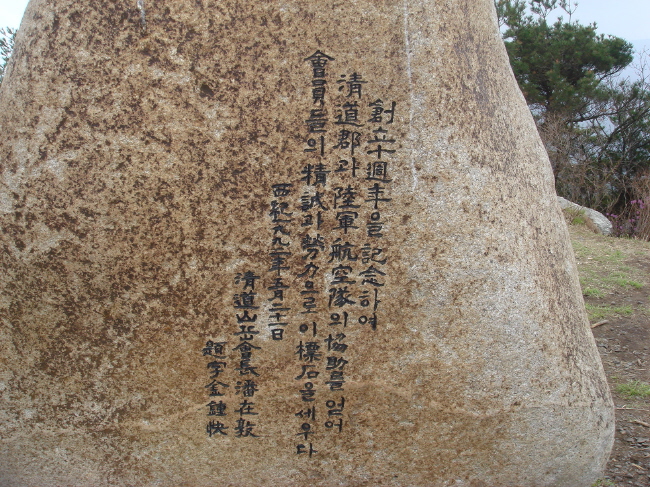 創立十週年을 記念하여
清道郡과 陸軍 航空隊의 協助를 얻어
會員들의 精誠과 勞力으로 이 標石을 세우다
西紀一九九二年五月三十一日
清道山岳會長 潘在敦
題字 金鍾快